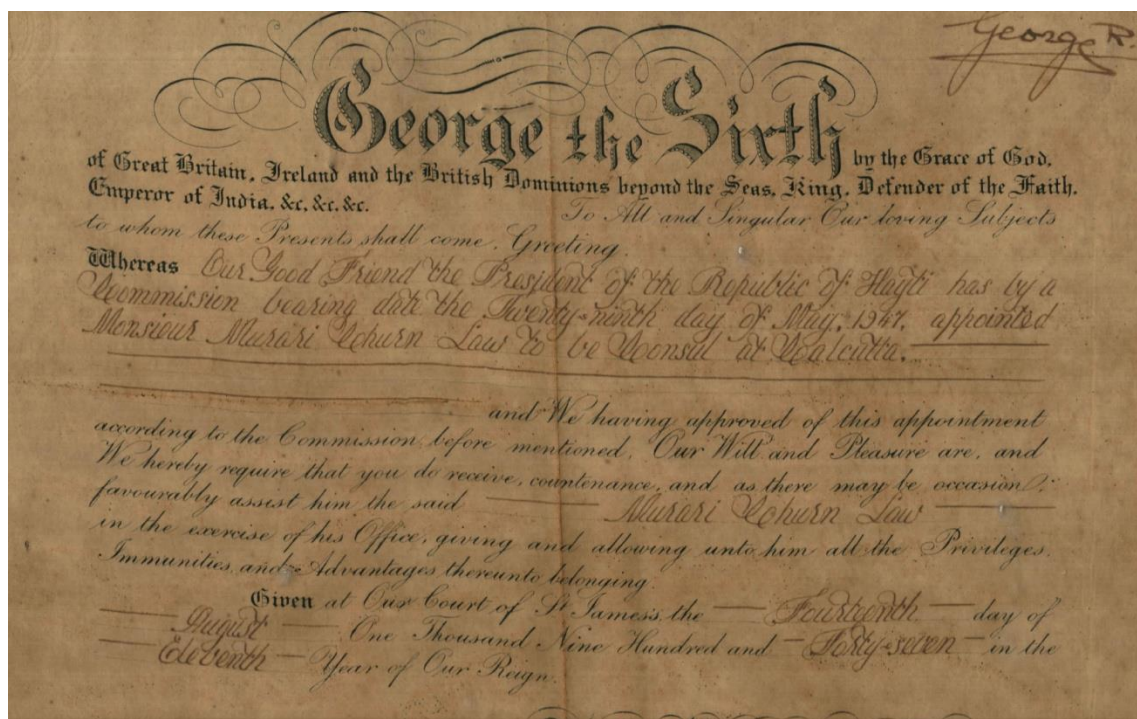 George R.
George the Sixth by the Grace of God,
of Great Britain, Ireland and the British Dominions beyond the Seas, King, Defender of the Faith,
Emperor of India, &c, &c, &c. To All and Singular Our loving Subjects
to whom these Presents shall come, Greeting.
Whereas Our Good Friend the President of the Republic of Hayti has by a
Commission bearing date the Twenty-ninth day of May, 1947, appointed
Monsieur Murari Churn Law to be Consul at Calcutta.
and We having approved of this appointment
according to the Commission before mentioned, Our Will and Pleasure are, and
We hereby require that you do receive, countenance, and as there may be occasion,
favourably assist him the said Murari Churn Law
in the exercise of his Office, giving and allowing unto him all the Privileges,
Immunities and Advantages thereunto belonging.
Given at Our Court of St James's, the Fourteenth day of
August One Thousand Nine Hundred and Forty-seven in the
Eleventh Year of Our Reign.